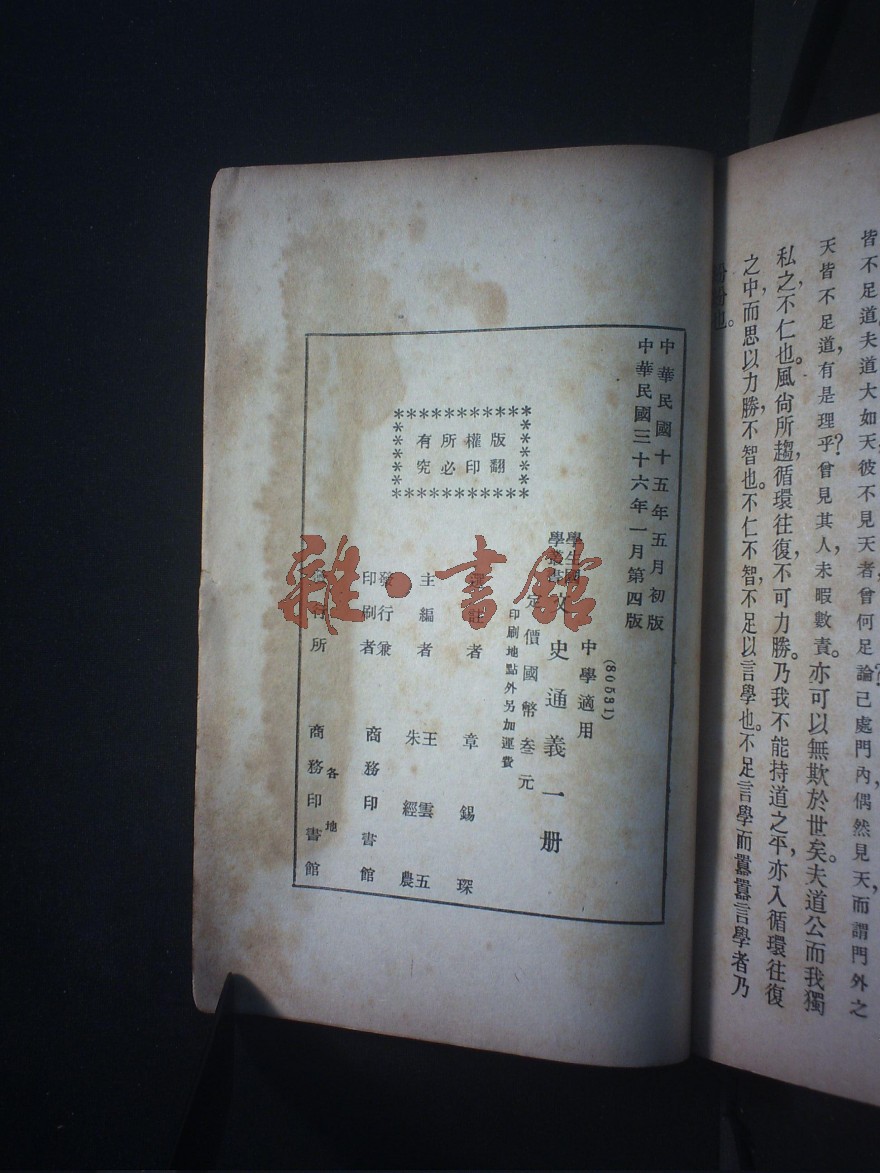 皆不足道，夫道大如天，彼不見天者，曾何足論。己處門內，偶然見天，而謂門外之
天皆不足道，有是理乎？曾見其人，未暇數責。亦可以無欺於世矣。夫道公而我獨
私之，不仁也。風尙所趨，循環往復，不可力勝，乃我不能持道之平，亦入循環往復
之中，而思以力勝，不智也。不仁不智，不足以言學也。不足言學，而囂囂言學者乃
紛紛也。
中華民國十五年五月初版
中華民國三十六年一月第四版
(80531)
中學適用
學生國學叢書
文史通義一册
定價國幣叁元
印刷地點外另加運費
版權所有
翻印必究
選註者 章錫琛
主編者 王雲五
朱經農
發行兼
印刷者 商務印書館
各地
發行所 商務印書館
雜·書館